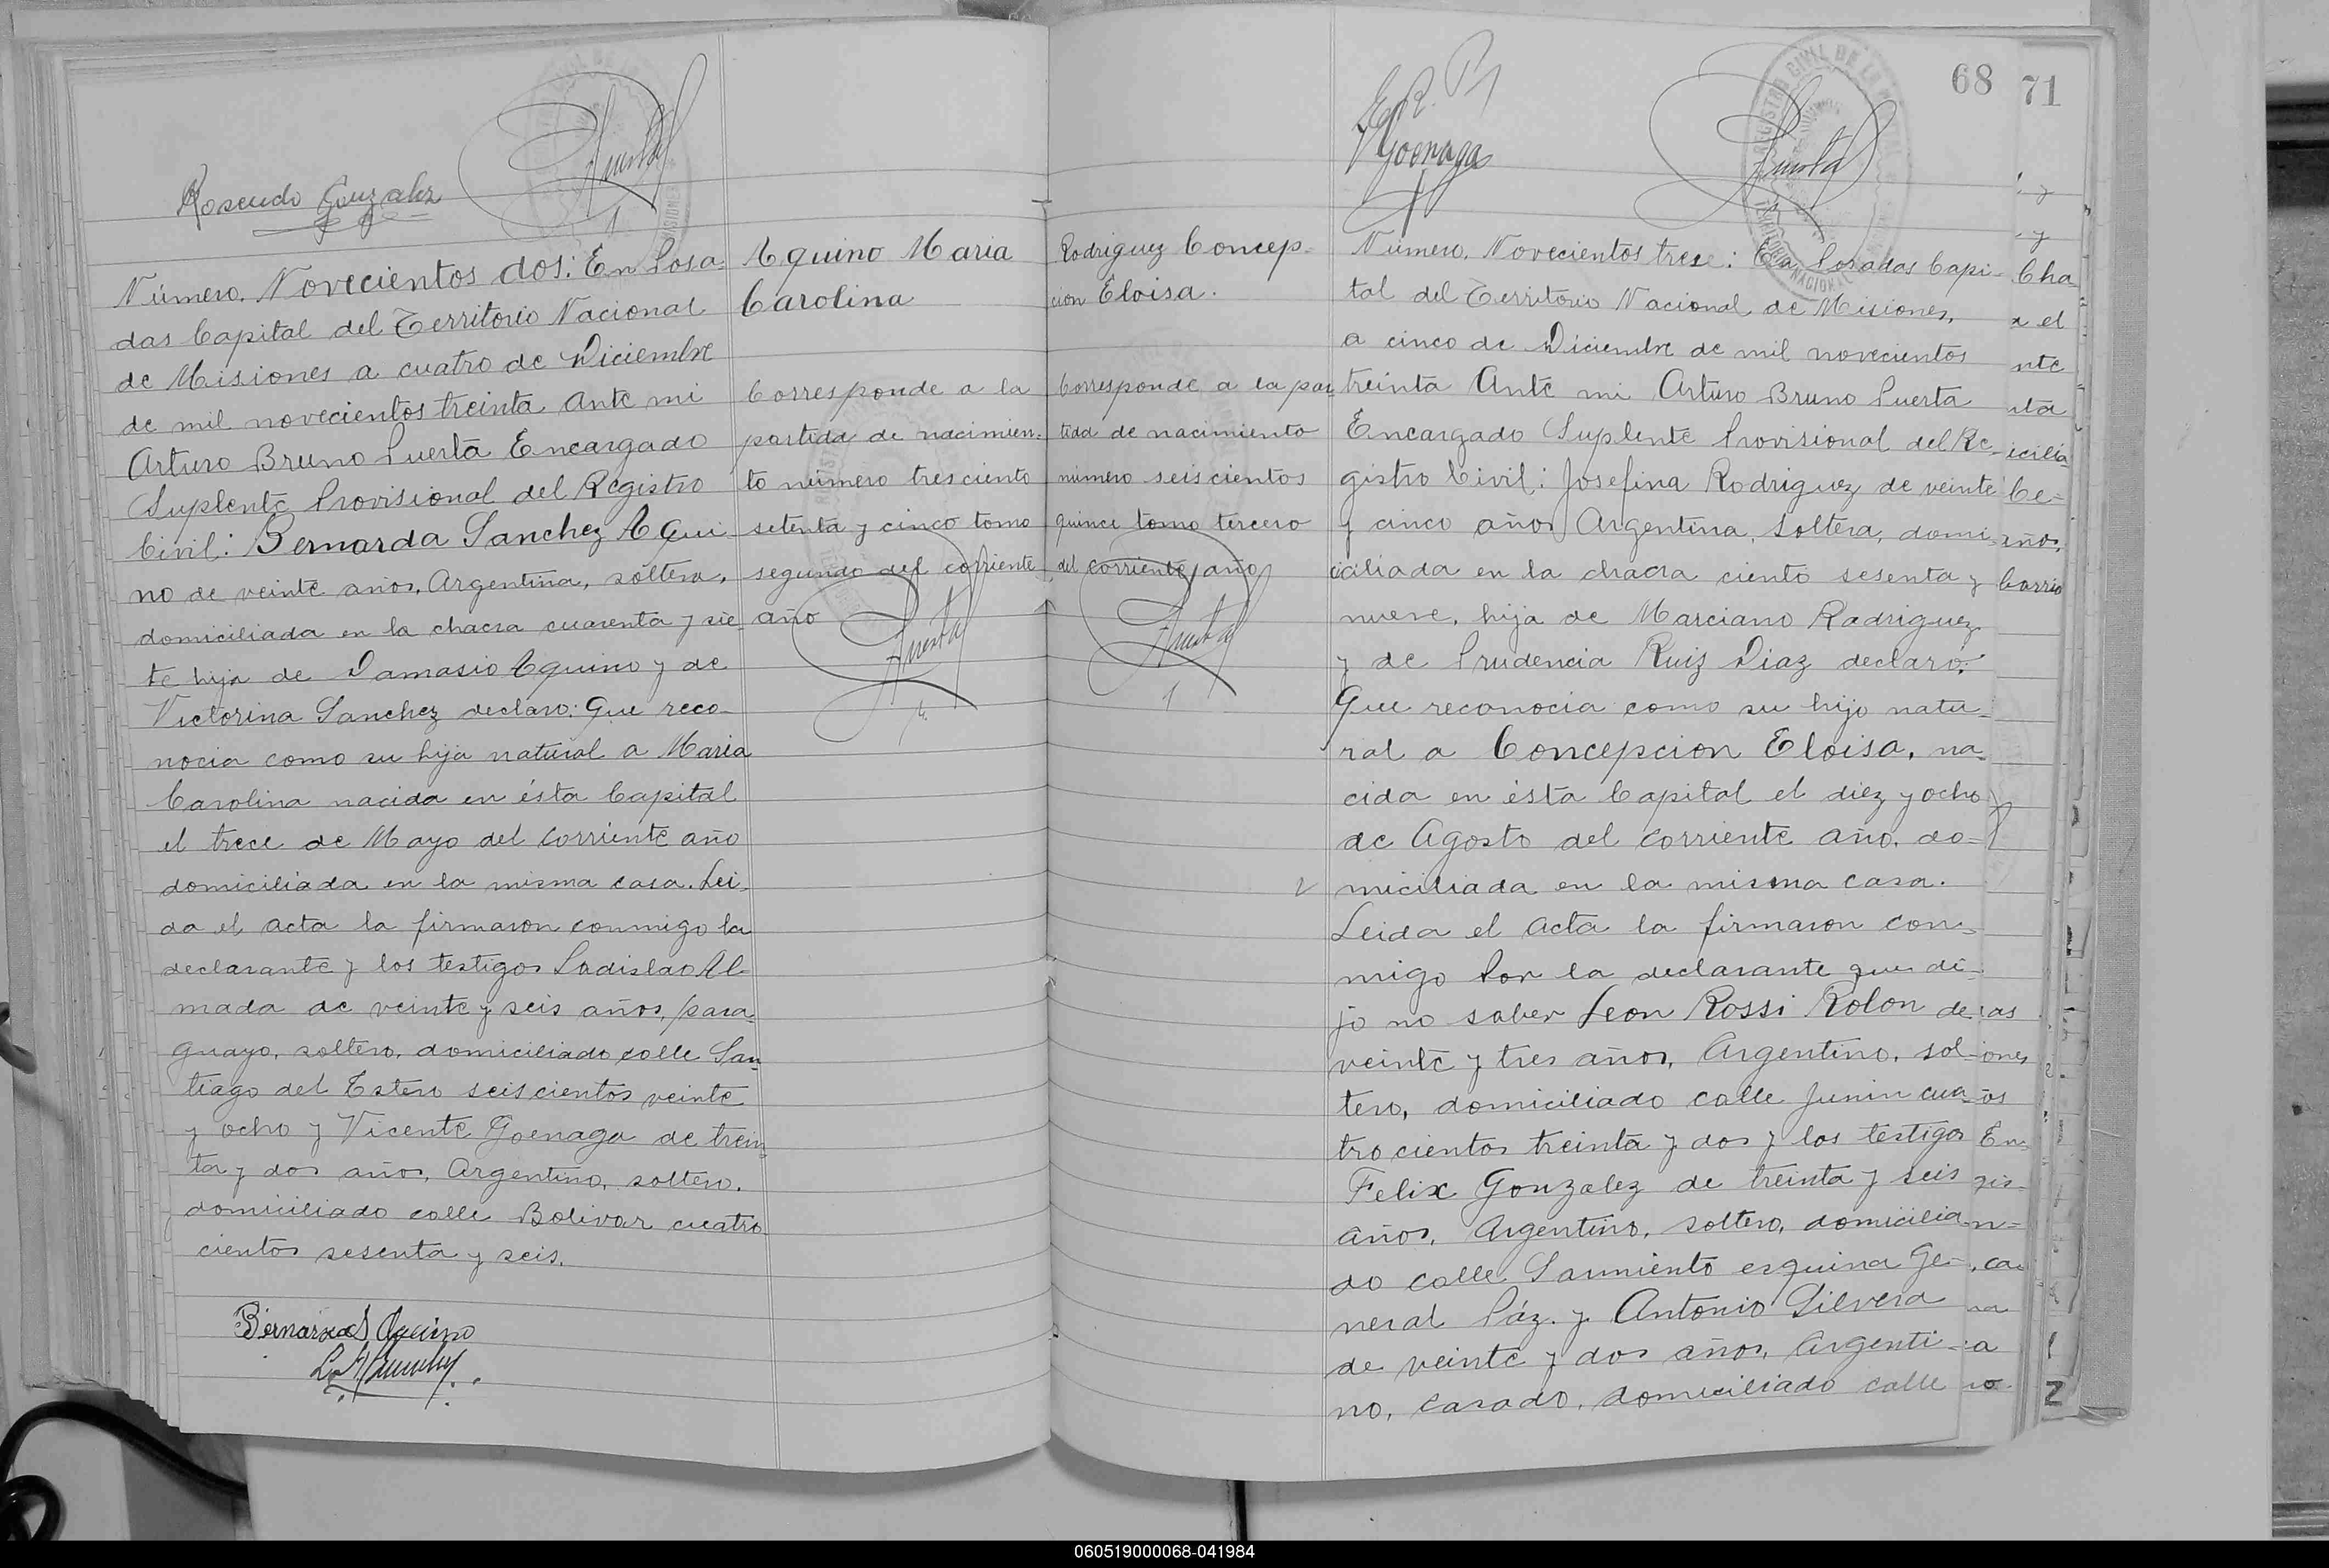 Rosendo Gonzalez
Puerta
Número. Novecientos dos: En Posa-
das Capital del Territorio Nacional
de Misiones a cuatro de Diciembre
de mil novecientos treinta Ante mi
Arturo Bruno Puerta Encargado
Suplente Provisional del Registro
Civil: Bernarda Sanchez Aqui-
no de veinte años, Argentina, soltera,
domiciliada en la chacra cuarenta y sie-
te hija de Damasio Aquino y de
Victorina Sanchez declaro: Que reco-
nocia como su hija natural a Maria
Carolina nacida en ésta Capital
el trece de Mayo del corriente año
domiciliada en la misma casa. Lei-
da el acta la firmaron conmigo la
declarante y los testigos Ladislao Al-
mada de veinte y seis años, para-
guayo, soltero, domiciliado calle San-
tiago del Estero seiscientos veinte
y ocho y Vicente Goenaga de trein-
ta y dos años, Argentino, soltero,
domiciliado calle Bolivar cuatro-
cientos sesenta y seis.
Bernarda S Aquino
Aquino Maria
Carolina
Corresponde a la
partida de nacimien-
to número tresciento
setenta y cinco tomo
segundo del corriente
año
Puerta
Rodriguez Concep-
cion Eloisa.
Corresponde a la par
tida de nacimiento
número seiscientos
quince tomo tercero
del corriente año
Puerta
VGoenaga
Puerta
68
Número. Novecientos tres: En Posadas Capi-
tal del Territorio Nacional de Misiones,
a cinco de Diciembre de mil novecientos
treinta Ante mi Arturo Bruno Puerta
Encargado Suplente Provisional del Re-
gistro Civil: Josefina Rodriguez de veinte
y cinco años Argentina, soltera, domi-
ciliada en la chacra ciento sesenta y
nueve, hija de Marciano Rodriguez
y de Prudencia Ruiz Diaz declaró:
Que reconocia como su hijo natu-
ral a Concepcion Eloisa, na-
cida en ésta Capital el diez y ocho
de Agosto del corriente año, do-
miciliada en la misma casa.
Leida el acta la firmaron con-
migo Por la declarante que di-
jo no saber Leon Rossi Rolon de
veinte y tres años, Argentino, sol-
tero, domiciliado calle Junin cua-
trocientos treinta y dos y los testigos
Felix Gonzalez de treinta y seis
años, Argentino, soltero, domicilia-
do calle Sarmiento esquina Ge-
neral Páz. y Antonio Silvera
de veinte y dos años, Argenti-
no, casado, domiciliado calle
71
060519000068-041984